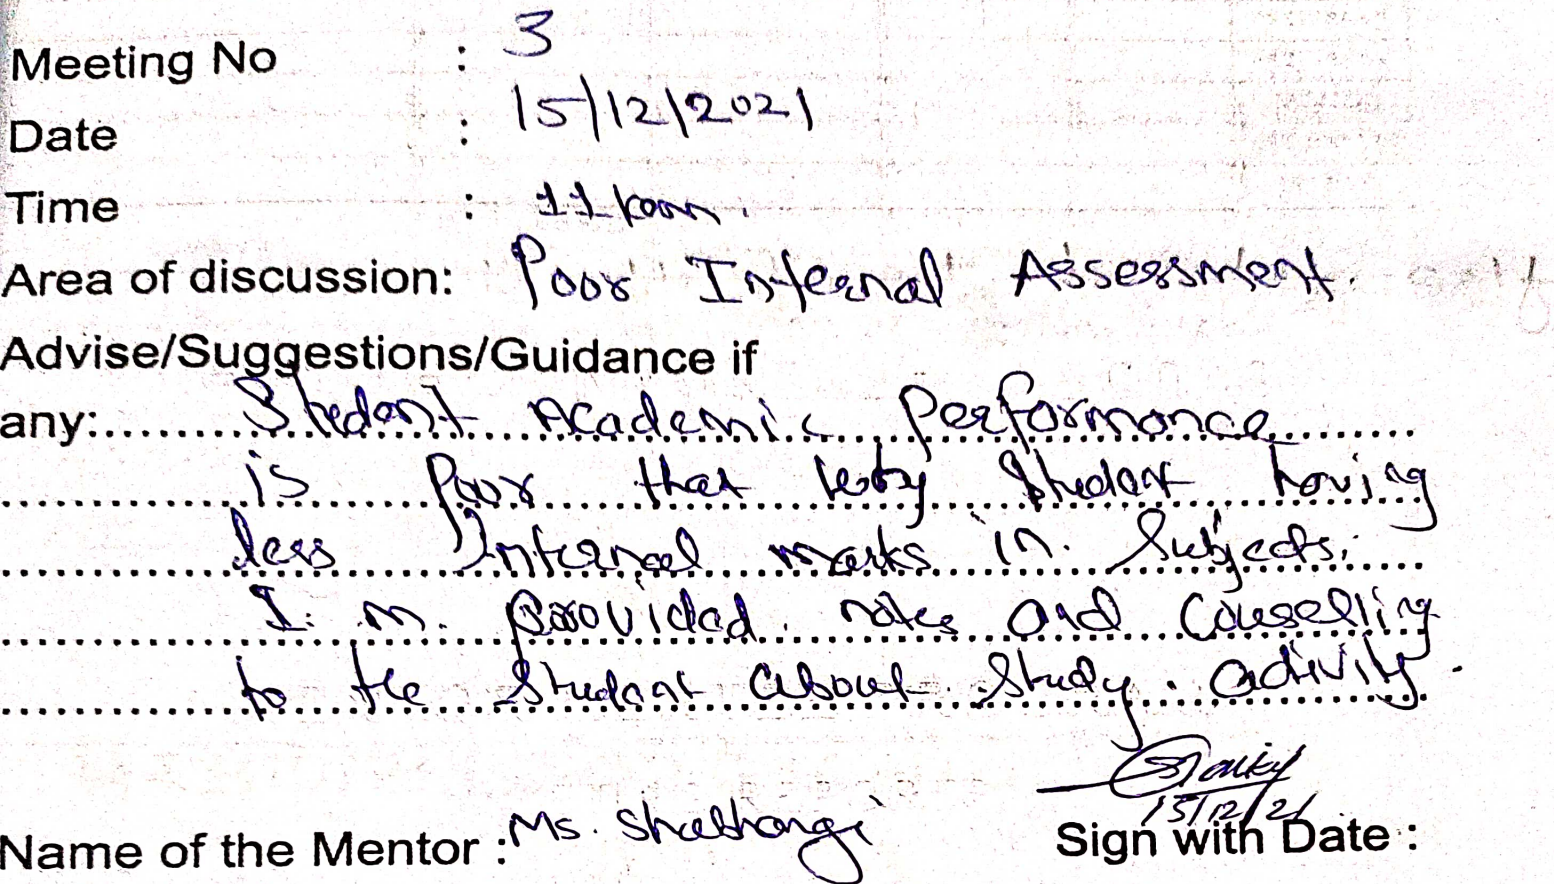 Meeting No : 3
Date : 15/12/2021
Time : 11
Area of discussion: Poor Internal Assessment.
Advise/Suggestions/Guidance if
any:.......Student Academic Performance.......
is Poor that Student having
less Internal marks in Subjects.
I. m. provided notes and Couselling
to the Student about Study activity.
15/12/21
Name of the Mentor : Ms. Sign with Date :